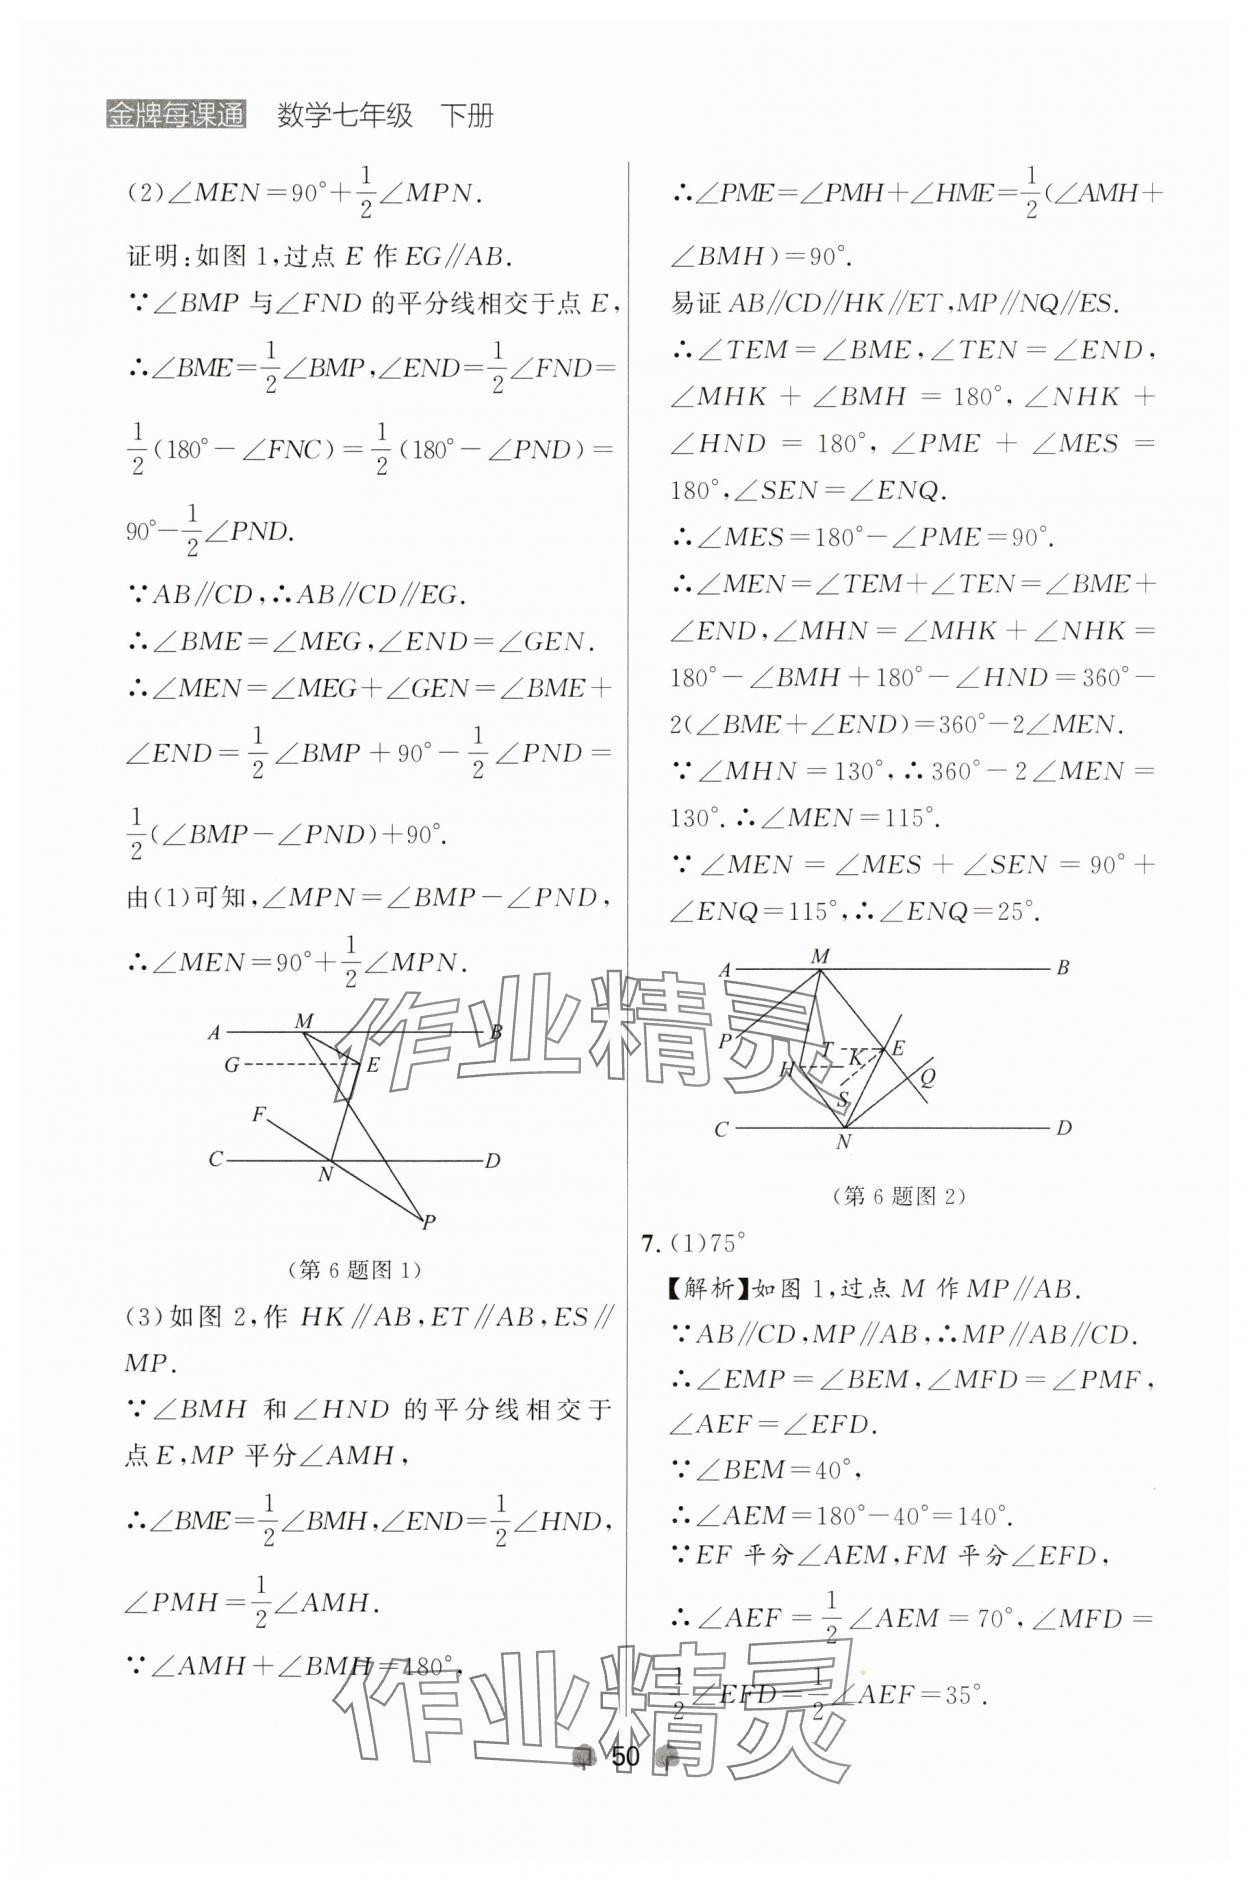 金牌每课通 数学七年级 下册
(2)∠MEN=90°+1/2∠MPN.
证明:如图1,过点E作EG∥AB.
∵∠BMP与∠FND的平分线相交于点E,
∴∠BME=1/2∠BMP,∠END=1/2∠FND=
1/2(180°-∠FNC)=1/2(180°-∠PND)=
90°-1/2∠PND.
∵AB∥CD,∴AB∥CD∥EG.
∴∠BME=∠MEG,∠END=∠GEN.
∴∠MEN=∠MEG+∠GEN=∠BME+
∠END=1/2∠BMP+90°-1/2∠PND=
1/2(∠BMP-∠PND)+90°.
由(1)可知,∠MPN=∠BMP-∠PND,
∴∠MEN=90°+1/2∠MPN.
A M B
G E
F
C N D
P
(第6题图1)
(3)如图2,作HK∥AB,ET∥AB,ES∥
MP.
∵∠BMH和∠HND的平分线相交于
点E,MP平分∠AMH,
∴∠BME=1/2∠BMH,∠END=1/2∠HND,
∠PMH=1/2∠AMH.
∵∠AMH+∠BMH=180°,
∴∠PME=∠PMH+∠HME=1/2(∠AMH+
∠BMH)=90°.
易证AB∥CD∥HK∥ET,MP∥NQ∥ES.
∴∠TEM=∠BME,∠TEN=∠END,
∠MHK+∠BMH=180°,∠NHK+
∠HND=180°,∠PME+∠MES=
180°,∠SEN=∠ENQ.
∴∠MES=180°-∠PME=90°.
∴∠MEN=∠TEM+∠TEN=∠BME+
∠END,∠MHN=∠MHK+∠NHK=
180°-∠BMH+180°-∠HND=360°-
2(∠BME+∠END)=360°-2∠MEN.
∵∠MHN=130°,∴360°-2∠MEN=
130°.∴∠MEN=115°.
∵∠MEN=∠MES+∠SEN=90°+
∠ENQ=115°,∴∠ENQ=25°.
A M B
P T E
H K Q
S
C N D
(第6题图2)
7.(1)75°
【解析】如图1,过点M作MP∥AB.
∵AB∥CD,MP∥AB,∴MP∥AB∥CD.
∴∠EMP=∠BEM,∠MFD=∠PMF,
∠AEF=∠EFD.
∵∠BEM=40°,
∴∠AEM=180°-40°=140°.
∵EF平分∠AEM,FM平分∠EFD,
∴∠AEF=1/2∠AEM=70°,∠MFD=
1/2∠EFD=1/2∠AEF=35°.
50
作业精灵
作业精灵